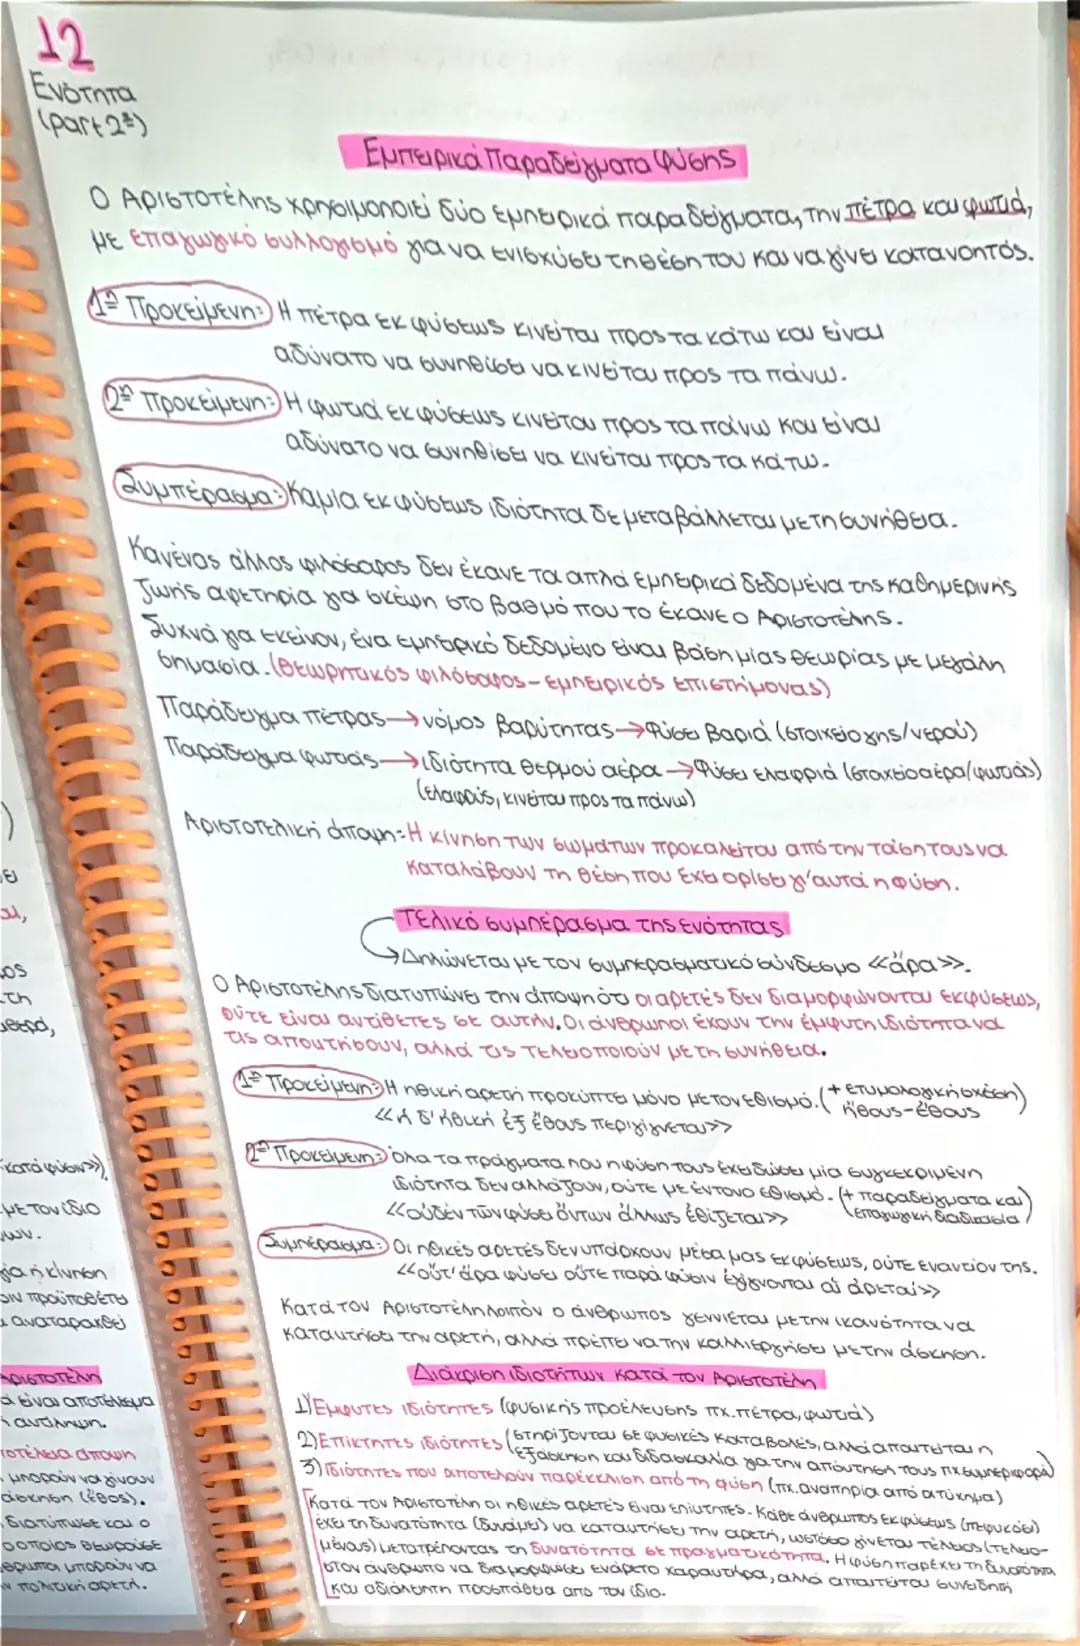 12
Ενότητα
(part 2*)
Εμπειρικά Παραδείγματα Φύσης
Ο Αριστοτέλης χρησιμοποιεί δύο εμπειρικά παραδείγματα, την πέτρα και φωτιά,
με επαγωγικό συλλογισμό για να ενισχύσει τη θέση του και να γίνει κατανοητός.
1η Προκείμενη: Η πέτρα εκ φύσεως κινείται προς τα κάτω και είναι
αδύνατο να συνηθίσει να κινείται προς τα πάνω.
2η Προκείμενη: Η φωτιά εκ φύσεως κινείται προς τα πάνω και είναι
αδύνατο να συνηθίσει να κινείται προς τα κάτω.
Συμπέρασμα: Καμία εκ φύσεως ιδιότητα δε μεταβάλλεται με τη συνήθεια.
Κανένας άλλος φιλόσοφος δεν έκανε τα απλά εμπειρικά δεδομένα της καθημερινής
ζωής αφετηρία για σκέψη στο βαθμό που το έκανε ο Αριστοτέλης.
Συχνά για εκείνον, ένα εμπειρικό δεδομένο είναι βάση μίας θεωρίας με μεγάλη
σημασία. (Θεωρητικός φιλόσοφος - εμπειρικός επιστήμονας)
Παράδειγμα πέτρας → νόμος βαρύτητας → Φύσει βαριά (στοιχείο γης/νερού)
Παράδειγμα φωτιάς → ιδιότητα θερμού αέρα → Φύσει ελαφριά (στοιχείο αέρα/φωτιάς)
(ελαφρύς, κινείται προς τα πάνω)
Αριστοτελική άποψη: Η κίνηση των σωμάτων προκαλείται από την τάση τους να
καταλάβουν τη θέση που έχει ορίσει γι'αυτά η φύση.
Τελικό συμπέρασμα της ενότητας
→ Δηλώνεται με τον συμπερασματικό σύνδεσμο «ἄρα».
Ο Αριστοτέλης διατυπώνει την άποψη ότι οι αρετές δεν διαμορφώνονται εκ φύσεως,
ούτε είναι αντίθετες σε αυτήν. Οι άνθρωποι έχουν την έμφυτη ιδιότητα να
τις αποκτήσουν, αλλά τις τελειοποιούν με τη συνήθεια.
1η Προκείμενη: Η ηθική αρετή προκύπτει μόνο με τον εθισμό. (+ ετυμολογική σχέση
ήθους-έθους)
«ἡ δ' ἠθικὴ ἐξ ἔθους περιγίγνεται»
2η Προκείμενη: Όλα τα πράγματα που η φύση τους έχει δώσει μία συγκεκριμένη
ιδιότητα δεν αλλάζουν, ούτε με έντονο εθισμό. (+ παραδείγματα και
επαγωγική διαδικασία)
«οὐδέν τῶν φύσει ὄντων ἄλλως ἐθίζεται»
Συμπέρασμα: Οι ηθικές αρετές δεν υπάρχουν μέσα μας εκ φύσεως, ούτε εναντίον της.
«οὔτ' ἄρα φύσει οὔτε παρὰ φύσιν ἐγγίγνονται αἱ ἀρεταί»
Κατά τον Αριστοτέλη λοιπόν ο άνθρωπος γεννιέται με την ικανότητα να
κατακτήσει την αρετή, αλλά πρέπει να την καλλιεργήσει με την άσκηση.
Διάκριση ιδιοτήτων κατά τον Αριστοτέλη
1) Έμφυτες ιδιότητες (φυσικής προέλευσης πχ. πέτρα, φωτιά)
2) Επίκτητες ιδιότητες (στηρίζονται σε φυσικές καταβολές, αλλά απαιτείται η
εξάσκηση και διδασκαλία για την απόκτησή τους πχ. συμπεριφορά)
3) Ιδιότητες που αποτελούν παρέκκλιση από τη φύση (πχ. αναπηρία από ατύχημα)
Κατά τον Αριστοτέλη οι ηθικές αρετές είναι επίκτητες. Κάθε άνθρωπος εκ φύσεως (πεφυκόσι)
έχει τη δυνατότητα (δυνάμει) να κατακτήσει την αρετή, ωστόσο γίνεται τέλειος (τελειο-
μένοις) μετατρέποντας τη δυνατότητα σε πραγματικότητα. Η φύση παρέχει τη δυνατότητα
στον άνθρωπο να διαμορφώσει ενάρετο χαρακτήρα, αλλά απαιτείται συνειδητή
και αδιάλειπτη προσπάθεια από τον ίδιο.
κατά φύσιν»).
με τον ίδιο
για ή κίνηση
προϋποθέτει
αναταραχθεί
Αριστοτέλη
είναι αποτέλεσμα
αντίληψη.
άποψη
μπορούν να γίνουν
άσκηση (ἔθος).
διατύπωσε και ο
οποίος θεωρούσε
μπορούν να
πολιτική αρετή.